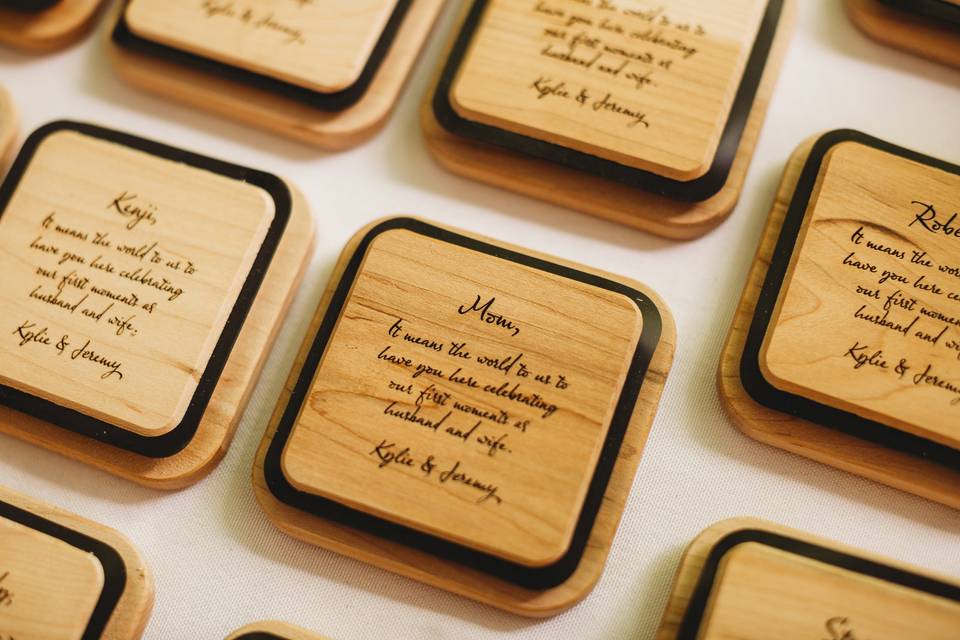 Kylie & Jeremy
have you here celebrating
our first moments as
husband and wife.
Kylie & Jeremy
Kenji,
It means the world to us to
have you here celebrating
our first moments as
husband and wife.
Kylie & Jeremy
Mom,
It means the world to us to
have you here celebrating
our first moments as
husband and wife.
Kylie & Jeremy
It means the
have you here
our first moments
husband and wife.
Kylie & Jeremy